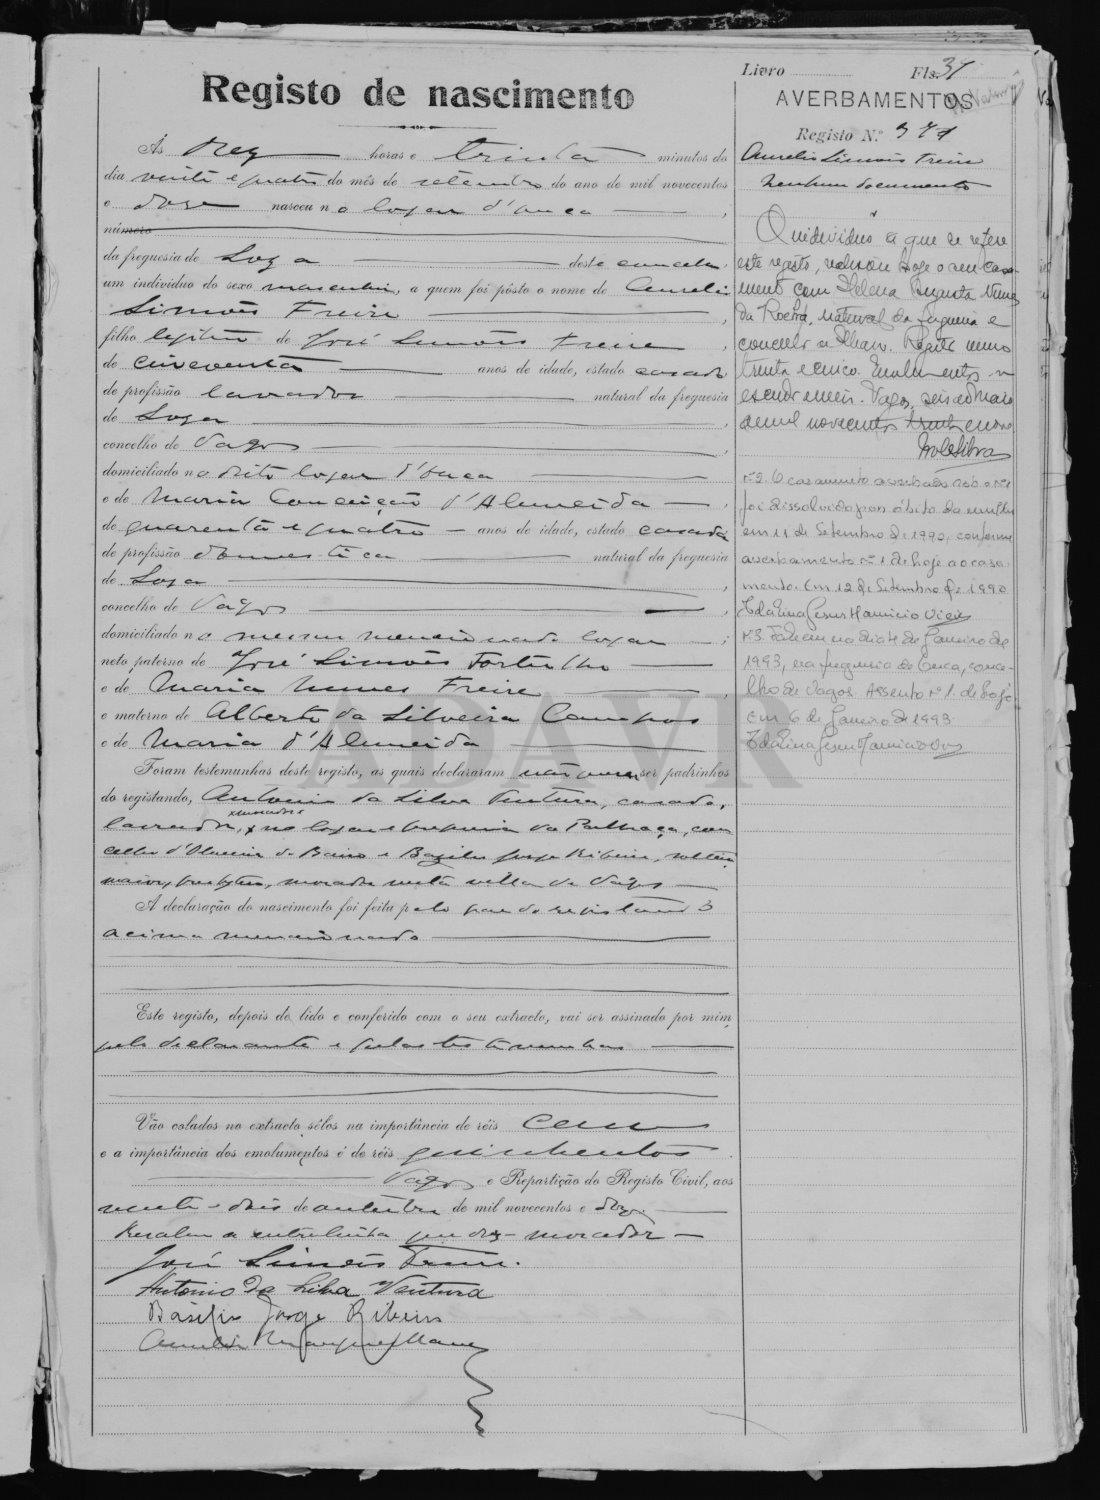 Registo de nascimento
Livro Fls. 31
AVERBAMENTOS
Registo N.º 371
Aurelio Simões Freire
Nenhum documento
Ás dez horas e trinta minutos do
dia vinte e quatro do mês de setembro do ano de mil novecentos
e doze nasceu no logar d'Ouca,
número
da freguesia de Soza deste concelho,
um indivíduo do sexo masculino, a quem foi pôsto o nome de Aurelio
Simões Freire,
filho legitimo de José Simões Freire,
de cincoenta anos de idade, estado casado
de profissão lavrador natural da freguesia
de Soza,
concelho de Vagos,
domiciliado no dito logar d'Ouca
e de Maria Conceição d'Almeida,
de quarenta e quatro anos de idade, estado casada
de profissão domestica natural da freguesia
de Soza,
concelho de Vagos,
domiciliado no mesmo mencionado logar;
neto paterno de José Simões Fortulho
e de Maria Nunes Freire,
e materno de Alberto da Silveira Campos
e de Maria d'Almeida
Foram testemunhas deste registo, as quais declararam não serem ser padrinhos
do registando, Antonio da Silva Ventura, casado,
lavrador, x morador x no logar e freguesia da Palhaça, con
celho d'Oliveira do Bairro e Bazilio Jorge Ribeiro, solteiro,
maior, presbytero, morador nesta villa de Vagos
A declaração do nascimento foi feita pelo pae do registando
acima mencionado
Este registo, depois de lido e conferido com o seu extracto, vai ser assinado por mim,
pelo declarante e pelas testemunhas
Vão colados no extracto sêlos na importância de réis cem
e a importância dos emolumentos é de réis quinhentos.
Vagos e Repartição do Registo Civil, aos
vinte e dois de outubro de mil novecentos e doze.
Resalvo a entrelinha que diz - morador -
José Simões Freire.
Antonio da Silva Ventura
Basilio Jorge Ribeiro
Aurelio Marques Mano
O individuo a que se refere
este registo, realisou hoje o seu casa-
mento com Helena Augusta Nunes
da Rocha, natural da freguesia e
concelho de Ilhavo. Registo numero
trinta e cinco. Emolumentos
escudo e meio. Vagos, seis de Maio
de mil novecentos trinta e nove.
Nº 2. O casamento averbado sob o nº 1
foi dissolvido por óbito da mulher
em 11 de Setembro de 1990, conforme
averbamento nº 1 de hoje ao casa-
mento. Em 12 de Setembro de 1990
Nº 3. Faleceu no dia 4 de Janeiro de
1993, na freguesia de Ouca, conce-
lho de Vagos. Assento nº 1. de hoje.
Em 6 de Janeiro de 1993
ADAVR